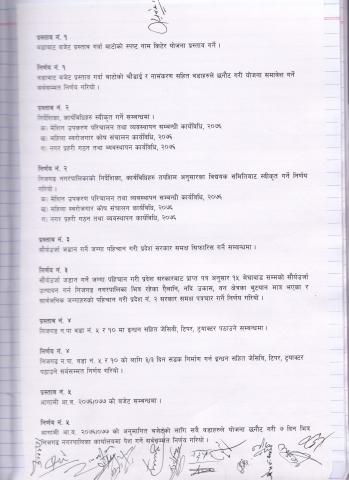 प्रस्ताव नं. १
वडाबाट बजेट प्रस्ताव गर्दा बाटोको स्पष्ट नाम किटेर योजना प्रस्ताव गर्ने ।
निर्णय नं. १
वडाबाट बजेट प्रस्ताव गर्दा बाटोको चौडाई र नामकरण सहित वडाहरुले छनौट गरी योजना समावेश गर्ने
सर्वसम्मत निर्णय गरियो ।
प्रस्ताव नं. २
निर्देशिका, कार्यविधिहरु स्वीकृत गर्ने सम्बन्धमा ।
क. मेशिन उपकरण परिचालन तथा व्यवस्थापन सम्बन्धी कार्यविधि, २०७६
ख. महिला स्वरोजगार कोष संचालन कार्यविधि, २०७६
ग. नगर प्रहरी गठन तथा व्यवस्थापन कार्यविधि, २०७६
निर्णय नं. २
निजगढ नगरपालिकाको निर्देशिका, कार्यविधिहरु तपशिल अनुसारका विधेयक समितिबाट स्वीकृत गर्ने निर्णय
गरियो ।
क. मेशिन उपकरण परिचालन तथा व्यवस्थापन सम्बन्धी कार्यविधि, २०७६
ख. महिला स्वरोजगार कोष संचालन कार्यविधि, २०७६
ग. नगर प्रहरी गठन तथा व्यवस्थापन कार्यविधि, २०७६
प्रस्ताव नं. ३
सौर्यउर्जा जडान गर्ने जग्गा पहिचान गरी प्रदेश सरकार समक्ष सिफारिस गर्ने सम्बन्धमा ।
निर्णय नं. ३
सौर्यउर्जा जडान गर्ने जग्गा पहिचान गरी प्रदेश सरकारबाट प्राप्त पत्र अनुसार १५ मेघावाड सम्मको सौर्यउर्जा
उत्पादन गर्न निजगढ नगरपालिका भित्र रहेका ऐलानि, नदि उकास, वन क्षेत्रका बुट्यान मात्र भएका र
सार्वजनिक जग्गाहरुको पहिचान गरी प्रदेश नं. २ सरकार समक्ष पत्रचार गर्ने निर्णय गरियो ।
प्रस्ताव नं. ४
निजगढ न.पा वडा नं. ५ र १० मा इन्धन सहित जेसिवी, टिपर, ट्र्याक्टर पठाउने सम्बन्धमा ।
निर्णय नं. ४
निजगढ न.पा. वडा नं. ५ र १० को लागि ३/३ दिन सडक निर्माण गर्न इन्धन सहित जेसिवि, टिपर, ट्र्याक्टर
पठाउने सर्वसम्मत निर्णय गरियो ।
प्रस्ताव नं. ५
आगामी आ.व. २०७६/०७७ को बजेट सम्बन्धमा ।
निर्णय नं. ५
आगामी आ.व. २०७६/०७७ को अनुमानित बजेटको लागि सबै वडाहरुले योजना छनौट गरी ७ दिन भित्र
निजगढ नगरपालिका कार्यालयमा पेश गर्ने सर्वसम्मत निर्णय गरियो ।